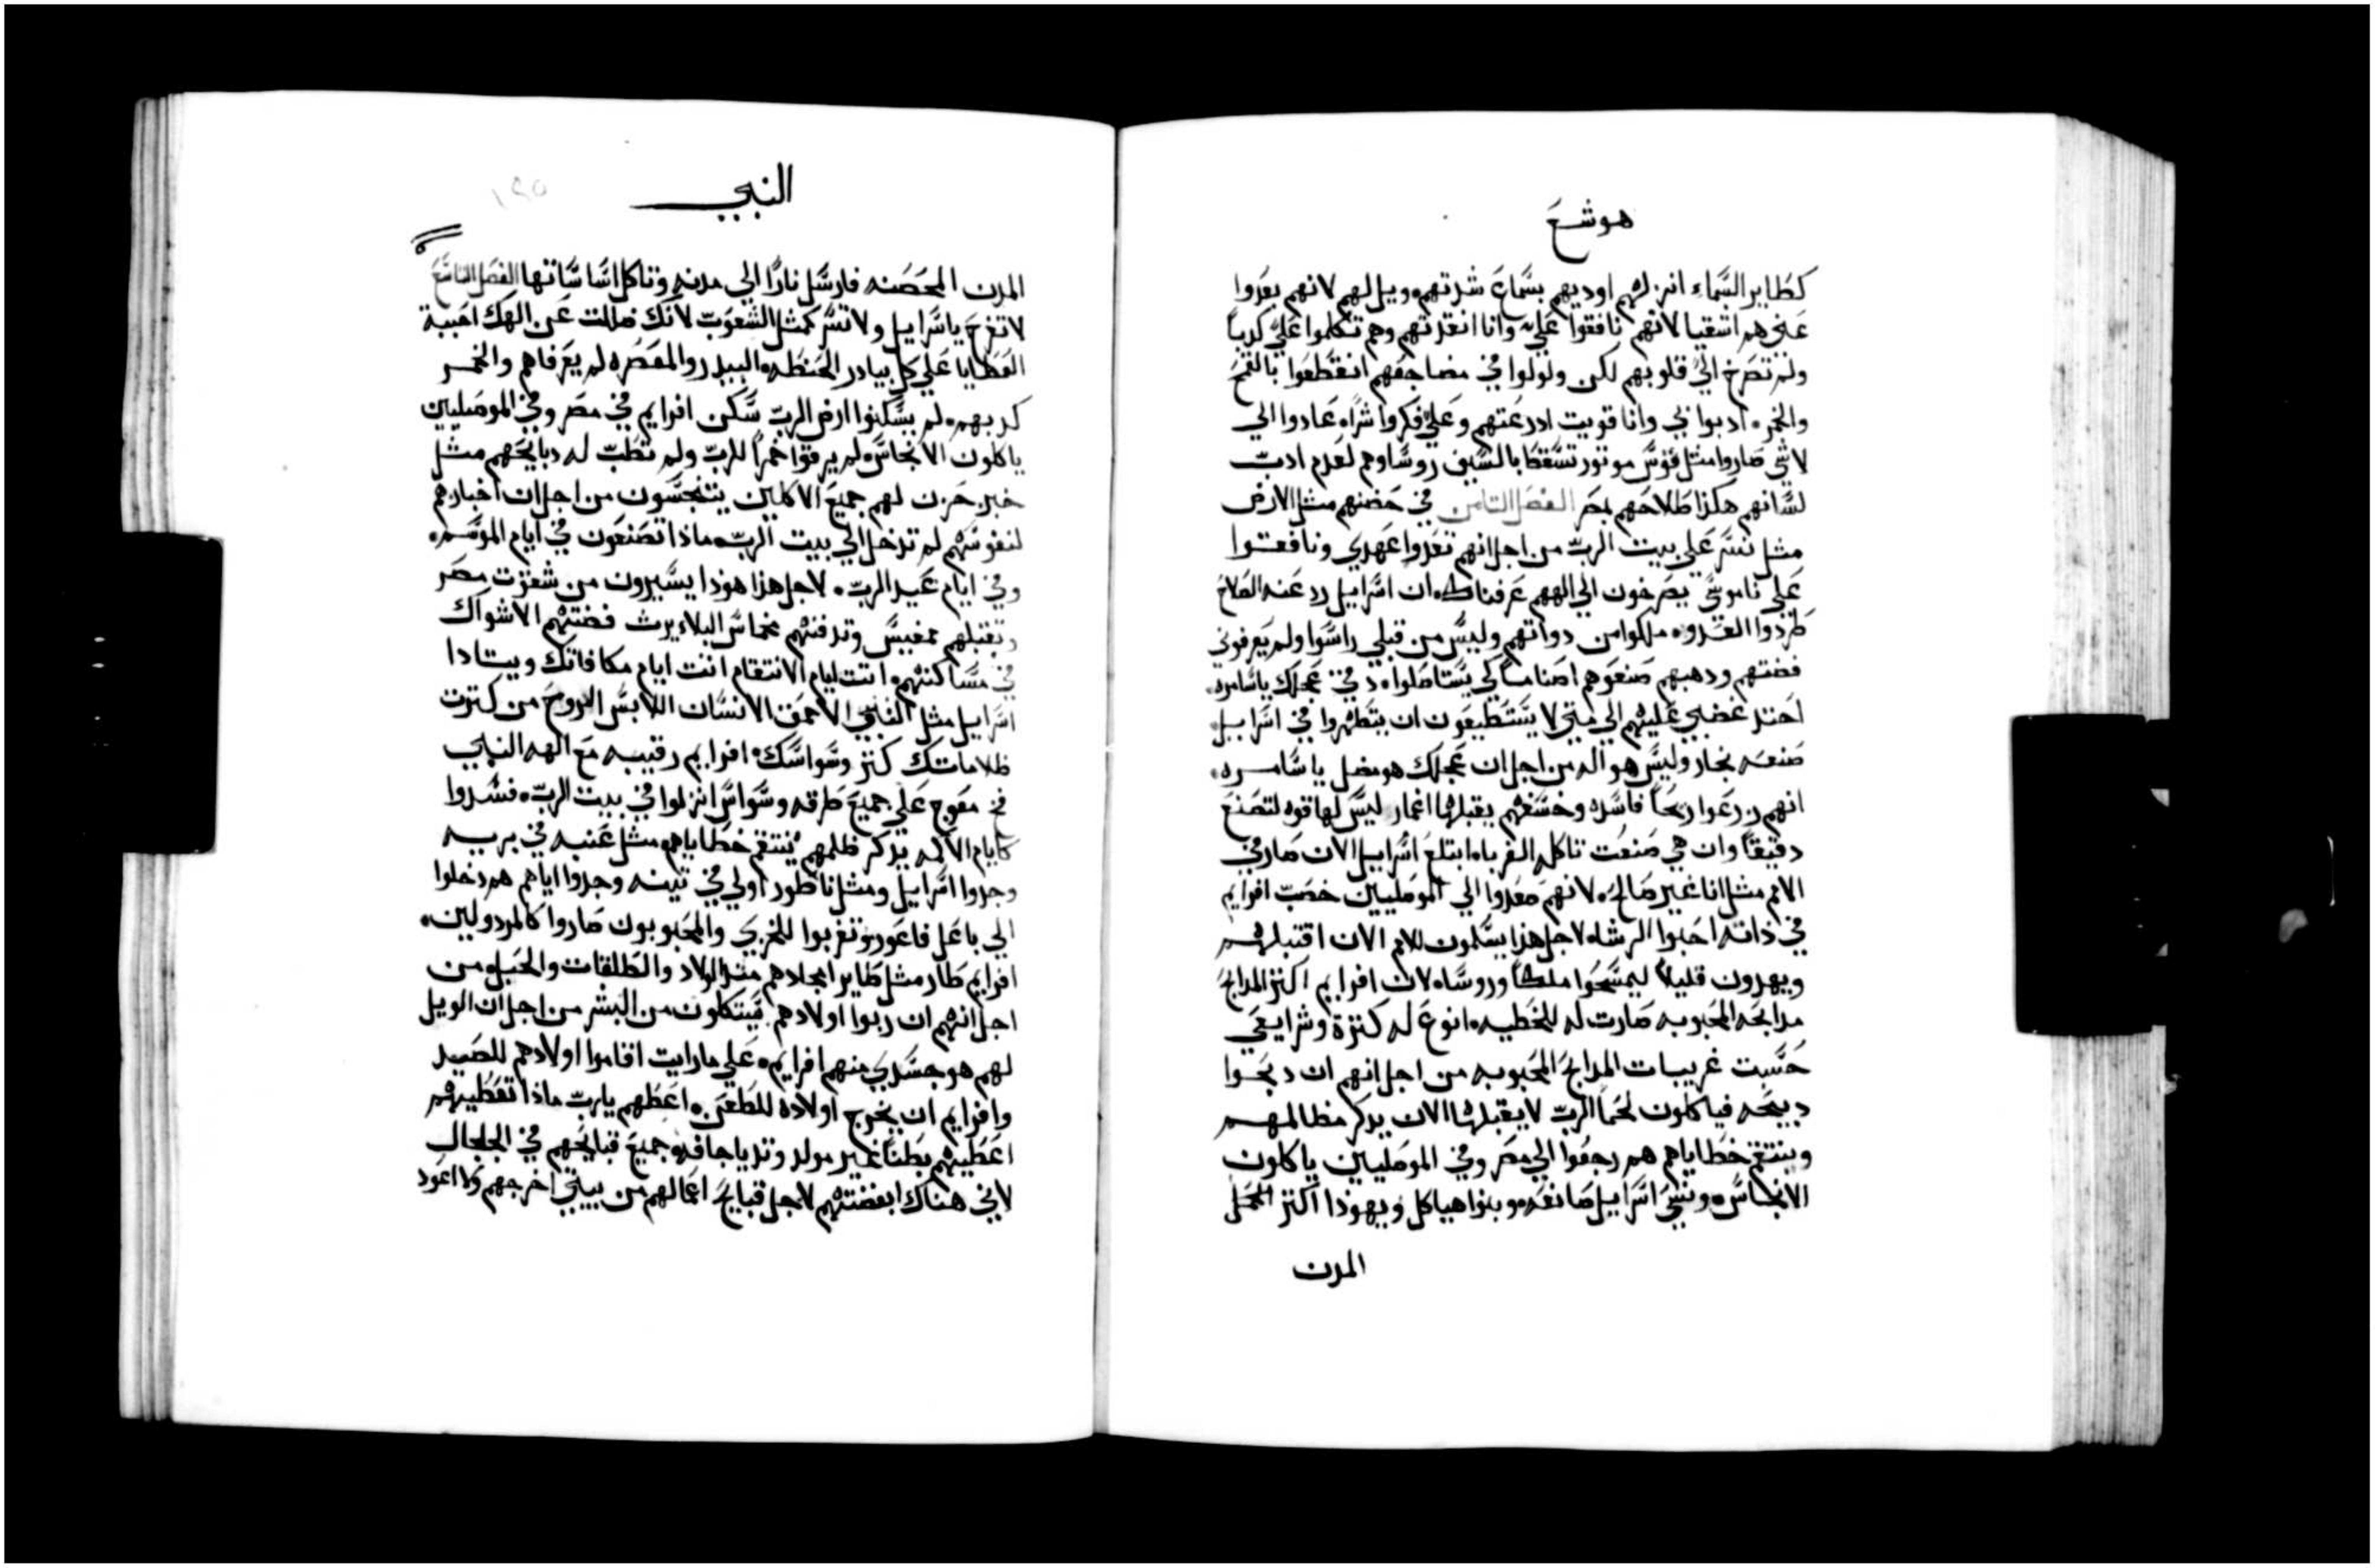 هوشع
كطاير السماء انزلهم اوديهم بسماع شدتهم ويل لهم لانهم بعدوا
عني هم اشقيا لانهم نافقوا علي وانا انقدتهم وهم تكلموا علي كدباً
ولم تصرخ الي قلوبهم لكن ولولوا في مضاجعهم انقطعوا بالقمح
والخمر ادبوا بي وانا قويت ادرعتهم وعلي فكروا شراً عادوا الي
لاشي صاروا مثل قوس موتور تسقط بالسيف روساوهم لعدم ادب
لسانهم هكذا طلاحهم بمصر الفصل الثامن في حضنهم مثل الارض
مثل نسر علي بيت الرب من اجل انهم تعدوا عهدي ونافقوا
علي ناموسي يصرخون الي الههم عرفناك ان اسراييل رد عنه الصلاح
طردوا العدو ملكوا من دواتهم وليس من قبلي راسوا ولم يعرفوني
فضتهم ودهبهم صنعوهم اصناماً لكي يستاصلوا في عجلك ياسامره
احتد غضبي عليهم الي متي لا يستطيعون ان يتطهروا في اسراييل
صنعه نجار وليس هو اله من اجل ان عجلك هو مضل ياسامره
انهم زرعوا ريحاً فاسده وخسفهم يقبلها اغمار ليس لها قوه لتصنع
دقيقاً وان هي صنعت تاكله الغربا ابتلع اسراييل الان صار في
الامم مثل انا غير صالح لانهم صعدوا الي الموصليين خصب افرايم
في ذاته احبوا الرشاه لاجل هذا يسلمون للامم الان اقتبلهم
ويهدون قليلاً ليمسحوا ملكاً وروساه لان افرايم اكثر المدابح
مدابحه المحبوبه صارت له للخطيه انوع له كثرة وشرايعي
حسبت غريبات المدابح المحبوبه من اجل انهم ان دبحوا
دبيحه فياكلون لحماً الرب لا يقبلها الان يدكر مظالمهم
وينتقم خطاياهم هم رجعوا الي مصر وفي الموصليين ياكلون
الانجاس ونسي اسراييل صانعه وبنوا هياكل ويهودا اكثر
المدن
النبي
١٩٥
المدن المحصنه فارسل ناراً الي مدنه وتاكل اساساتها الفصل التاسع
لا تفرح ياسراييل ولا تسر كمثل الشعوب لانك ضللت عن الهك احببة
العطايا علي كل بيادر الحنطه البيدر والمعصره لم يعرفاهم والخمر
كدبهم لم يسكنوا ارض الرب سكن افرايم في مصر وفي الموصليين
ياكلون الانجاس لم يرقوا خمراً للرب ولم تطب له دبايحهم مثل
خبز حزن لهم جميع الاكلين يتنجسون من اجل ان اخبازهم
لنفوسهم لم تدخل الي بيت الرب ماذا تصنعون في ايام الموسم
وفي ايام عيد الرب لاجل هذا هوذا يسيرون من شعوت مصر
وتقبلهم ممفيس وتدفنهم مخماس البلا يرث فضتهم الاشواك
في مساكنهم اتت ايام الانتقام اتت ايام مكافاتك ويتادا
اسراييل مثل النبي الاحمق الانسان اللابس الروح من كترت
ظلاماتك كتر وسواسك افرايم رقيبه مع اله النبي
فخ معوج علي جميع طرقه وسواس انزلوا في بيت الرب فسدوا
كايام الاكمه يدكر ظلمهم ينتقم خطاياهم مثل عنبه في بريه
وجدوا اسراييل ومثل ناطور اولي في تينه وجدوا اياهم هم دخلوا
الي باعل فاعور وتغربوا للخزي والمحبوبون صاروا كالمردولين
افرايم طار مثل طاير امجادهم من الولاد والطلقات والحبل من
اجل انهم ان ربوا اولادهم فيتكلون من البشر من اجل ان الويل
لهم هو جسدي منهم افرايم علي ما رايت اقاموا اولادهم للصيد
وافرايم ان يخرج اولاده للطعن اعطهم يارب ماذا تعطيهم
اعطيهم بطناً غير مولد وتديا جافه جميع قبايحهم في الجلجال
لاني هناك ابغضتهم لاجل قبايح اعمالهم من بيتي اخرجهم ولا اعود